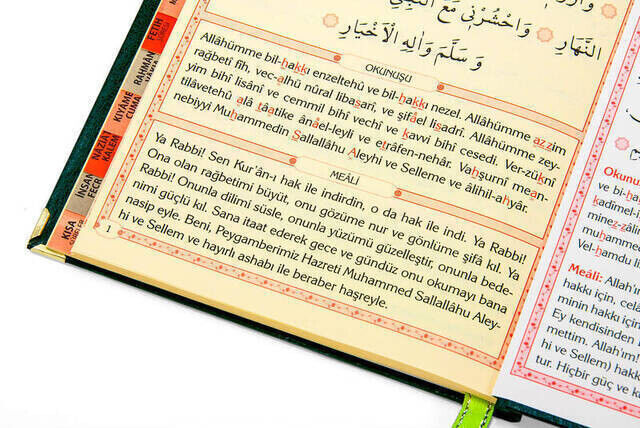 النَّهَارِ وَاحْشُرْنِي مَعَ النَّبِيِّ
وَسَلَّمَ وَاٰلِهِ الْاَخْيَارِ
OKUNUŞU
Allâhümme bil-hakkı enzeltehû ve bil-hakkı nezel. Allâhümme azzim
rağbetî fîh, vec-alhü nûral libasarî, ve şifâel lisadrî. Allâhümme zey-
yim bihî lisânî ve cemmil bihî vechî ve kavvi bihî cesedî. Ver-züknî
tilâvetehû alâ tâatike ânâel-leyli ve etrâfen-nehâr. Vahşurnî mean-
nebiyyi Muhammedin Sallallâhu Aleyhi ve Selleme ve âlihil-ahyâr.
MEÂLİ
Ya Rabbi! Sen Kur'ân-ı hak ile indirdin, o da hak ile indi. Ya Rabbi!
Ona olan rağbetimi büyüt, onu gözüme nur ve gönlüme şifâ kıl. Ya
Rabbi! Onunla dilimi süsle, onunla yüzümü güzelleştir, onunla bede-
nimi güçlü kıl. Sana itaat ederek gece ve gündüz onu okumayı bana
nasip eyle. Beni, Peygamberimiz Hazreti Muhammed Sallallâhu Aley-
hi ve Sellem ve hayırlı ashabı ile beraber haşreyle.
1
FETİH
RAHMÂN
KIYAME
CUMA
NAZİAT
KALEM
İNSAN
FECR
KISA
Okunu
ve bi-ha
kadîmel-i
minez-zâli
huhamm
Vel-hamdu l
Meâli: Allah'ı
hakkı için, cel
minin hakkı i
Ey kendisinden
mettim. Allah'ım!
hi ve Sellem) hakk
tur. Hiçbir güç ve k